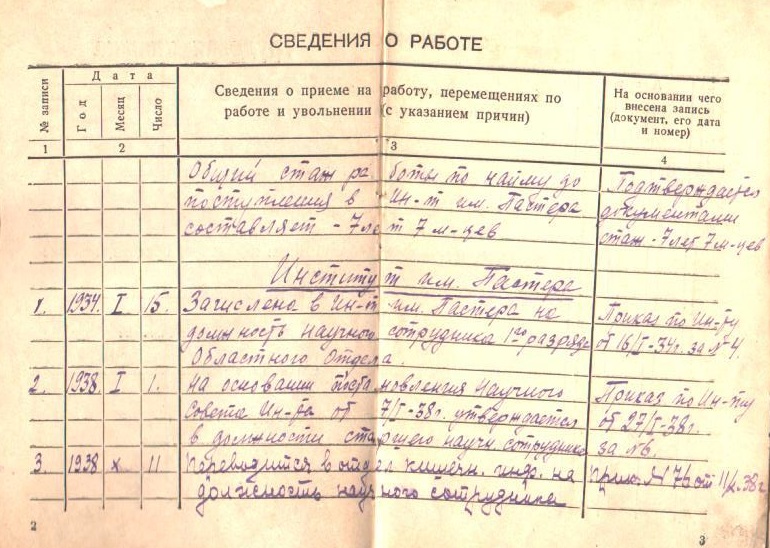 СВЕДЕНИЯ О РАБОТЕ
№ записи
Дата
Год
Месяц
Число
Сведения о приеме на работу, перемещениях по
работе и увольнении (с указанием причин)
На основании чего
внесена запись
(документ, его дата
и номер)
1 2 3 4
Общий стаж работы по найму до
поступления в Ин-т им. Пастера
составляет - 7 лет 7 м-цев
Подтверждается
документами
стаж - 7 лет 7 м-цев
Институт им. Пастера
1. 1934 I 15. Зачислена в Ин-т им. Пастера на
должность научного сотрудника 1го разряда
Областного Отдела.
Приказ по Ин-ту
от 16/I-34г. за № 4.
2. 1938 I 1. На основании постановления Научного
Совета Ин-та от 7/I-38г. утверждается
в должности старшего научн. сотрудника
Приказ по Ин-ту
от 27/I-38г.
за №6.
3. 1938 X 11 Переводится в отдел кишечн. инф. на
должность научного сотрудника
прик. N 76 от 11/X.38г
2
3